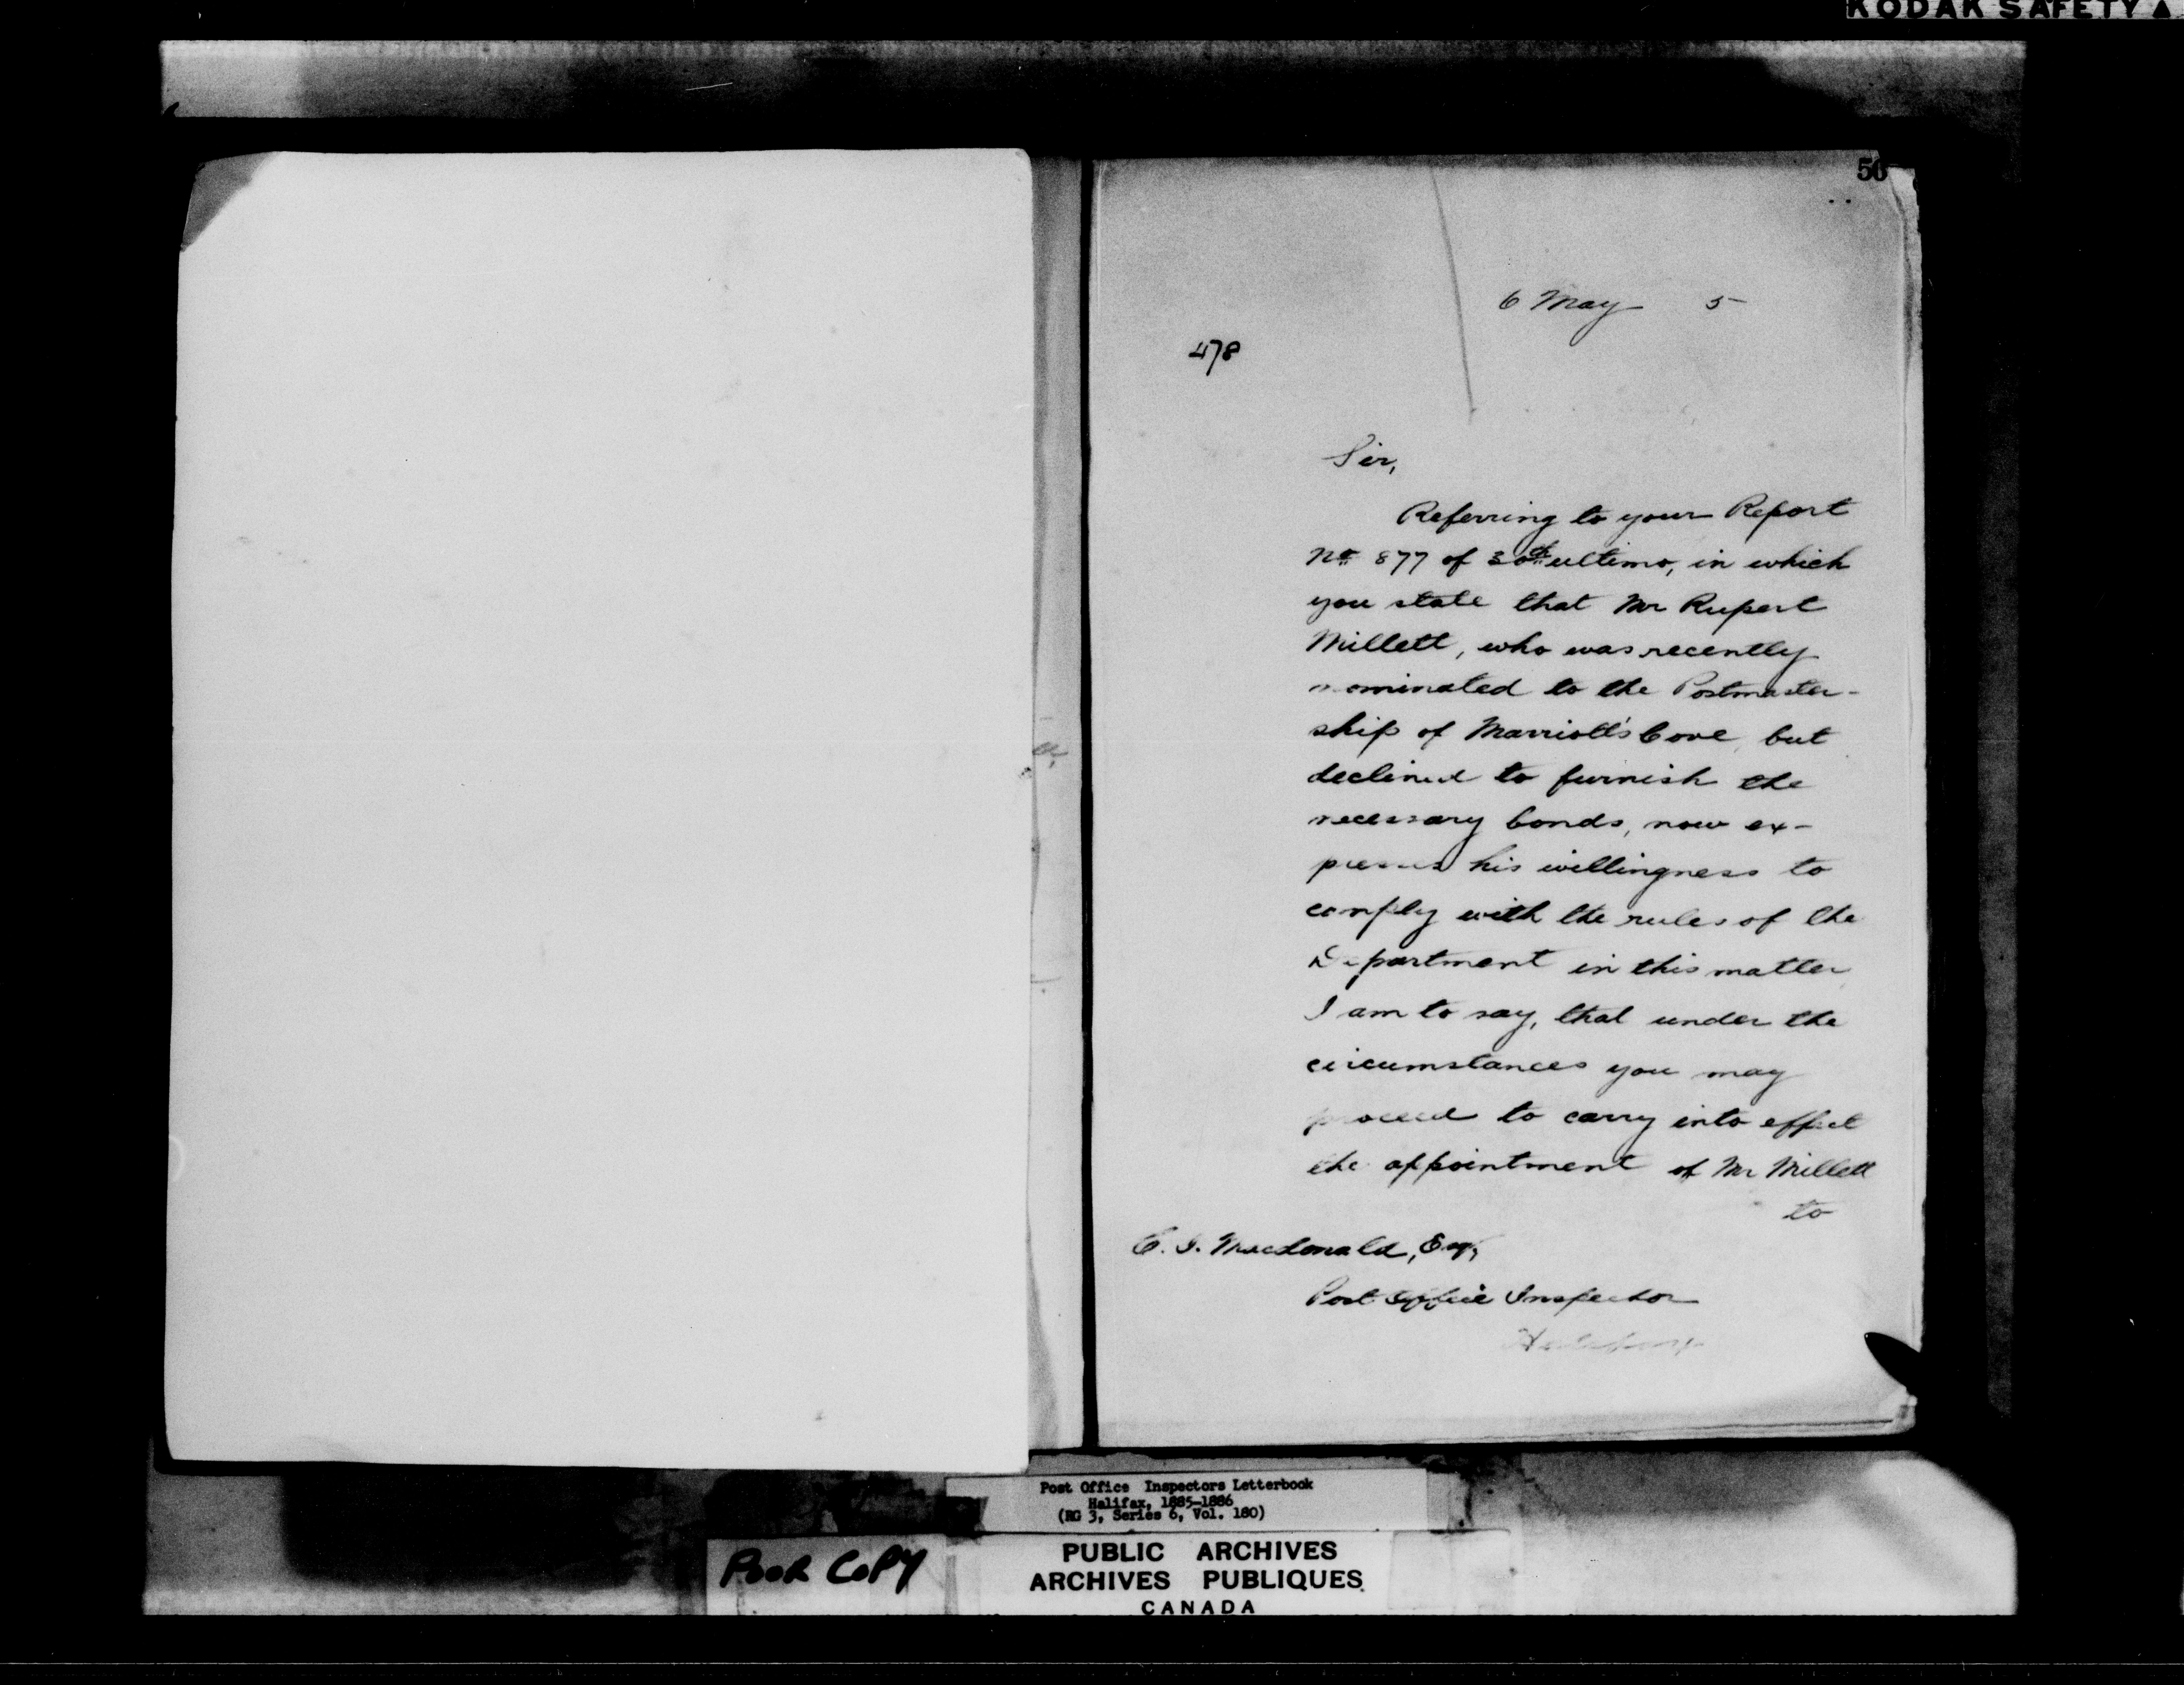 KODAK SAFETY ▲
50
6 May 5
478
Sir,
Referring to your Report
No 877 of 30th ultimo, in which
you state that Mr Rupert
Millett, who was recently
nominated to the Postmaster-
ship of Marriott's Cove, but
declined to furnish the
necessary bonds, now ex-
presses his willingness to
comply with the rules of the
Department in this matter,
I am to say, that under the
circumstances you may
proceed to carry into effect
the appointment of Mr Millett
to
C. J. Macdonald, Esq,
Post Office Inspector
Post Office Inspectors Letterbook
Halifax, 1885-1886
(RG 3, Series 6, Vol. 180)
POOR COPY
PUBLIC ARCHIVES
ARCHIVES PUBLIQUES
CANADA